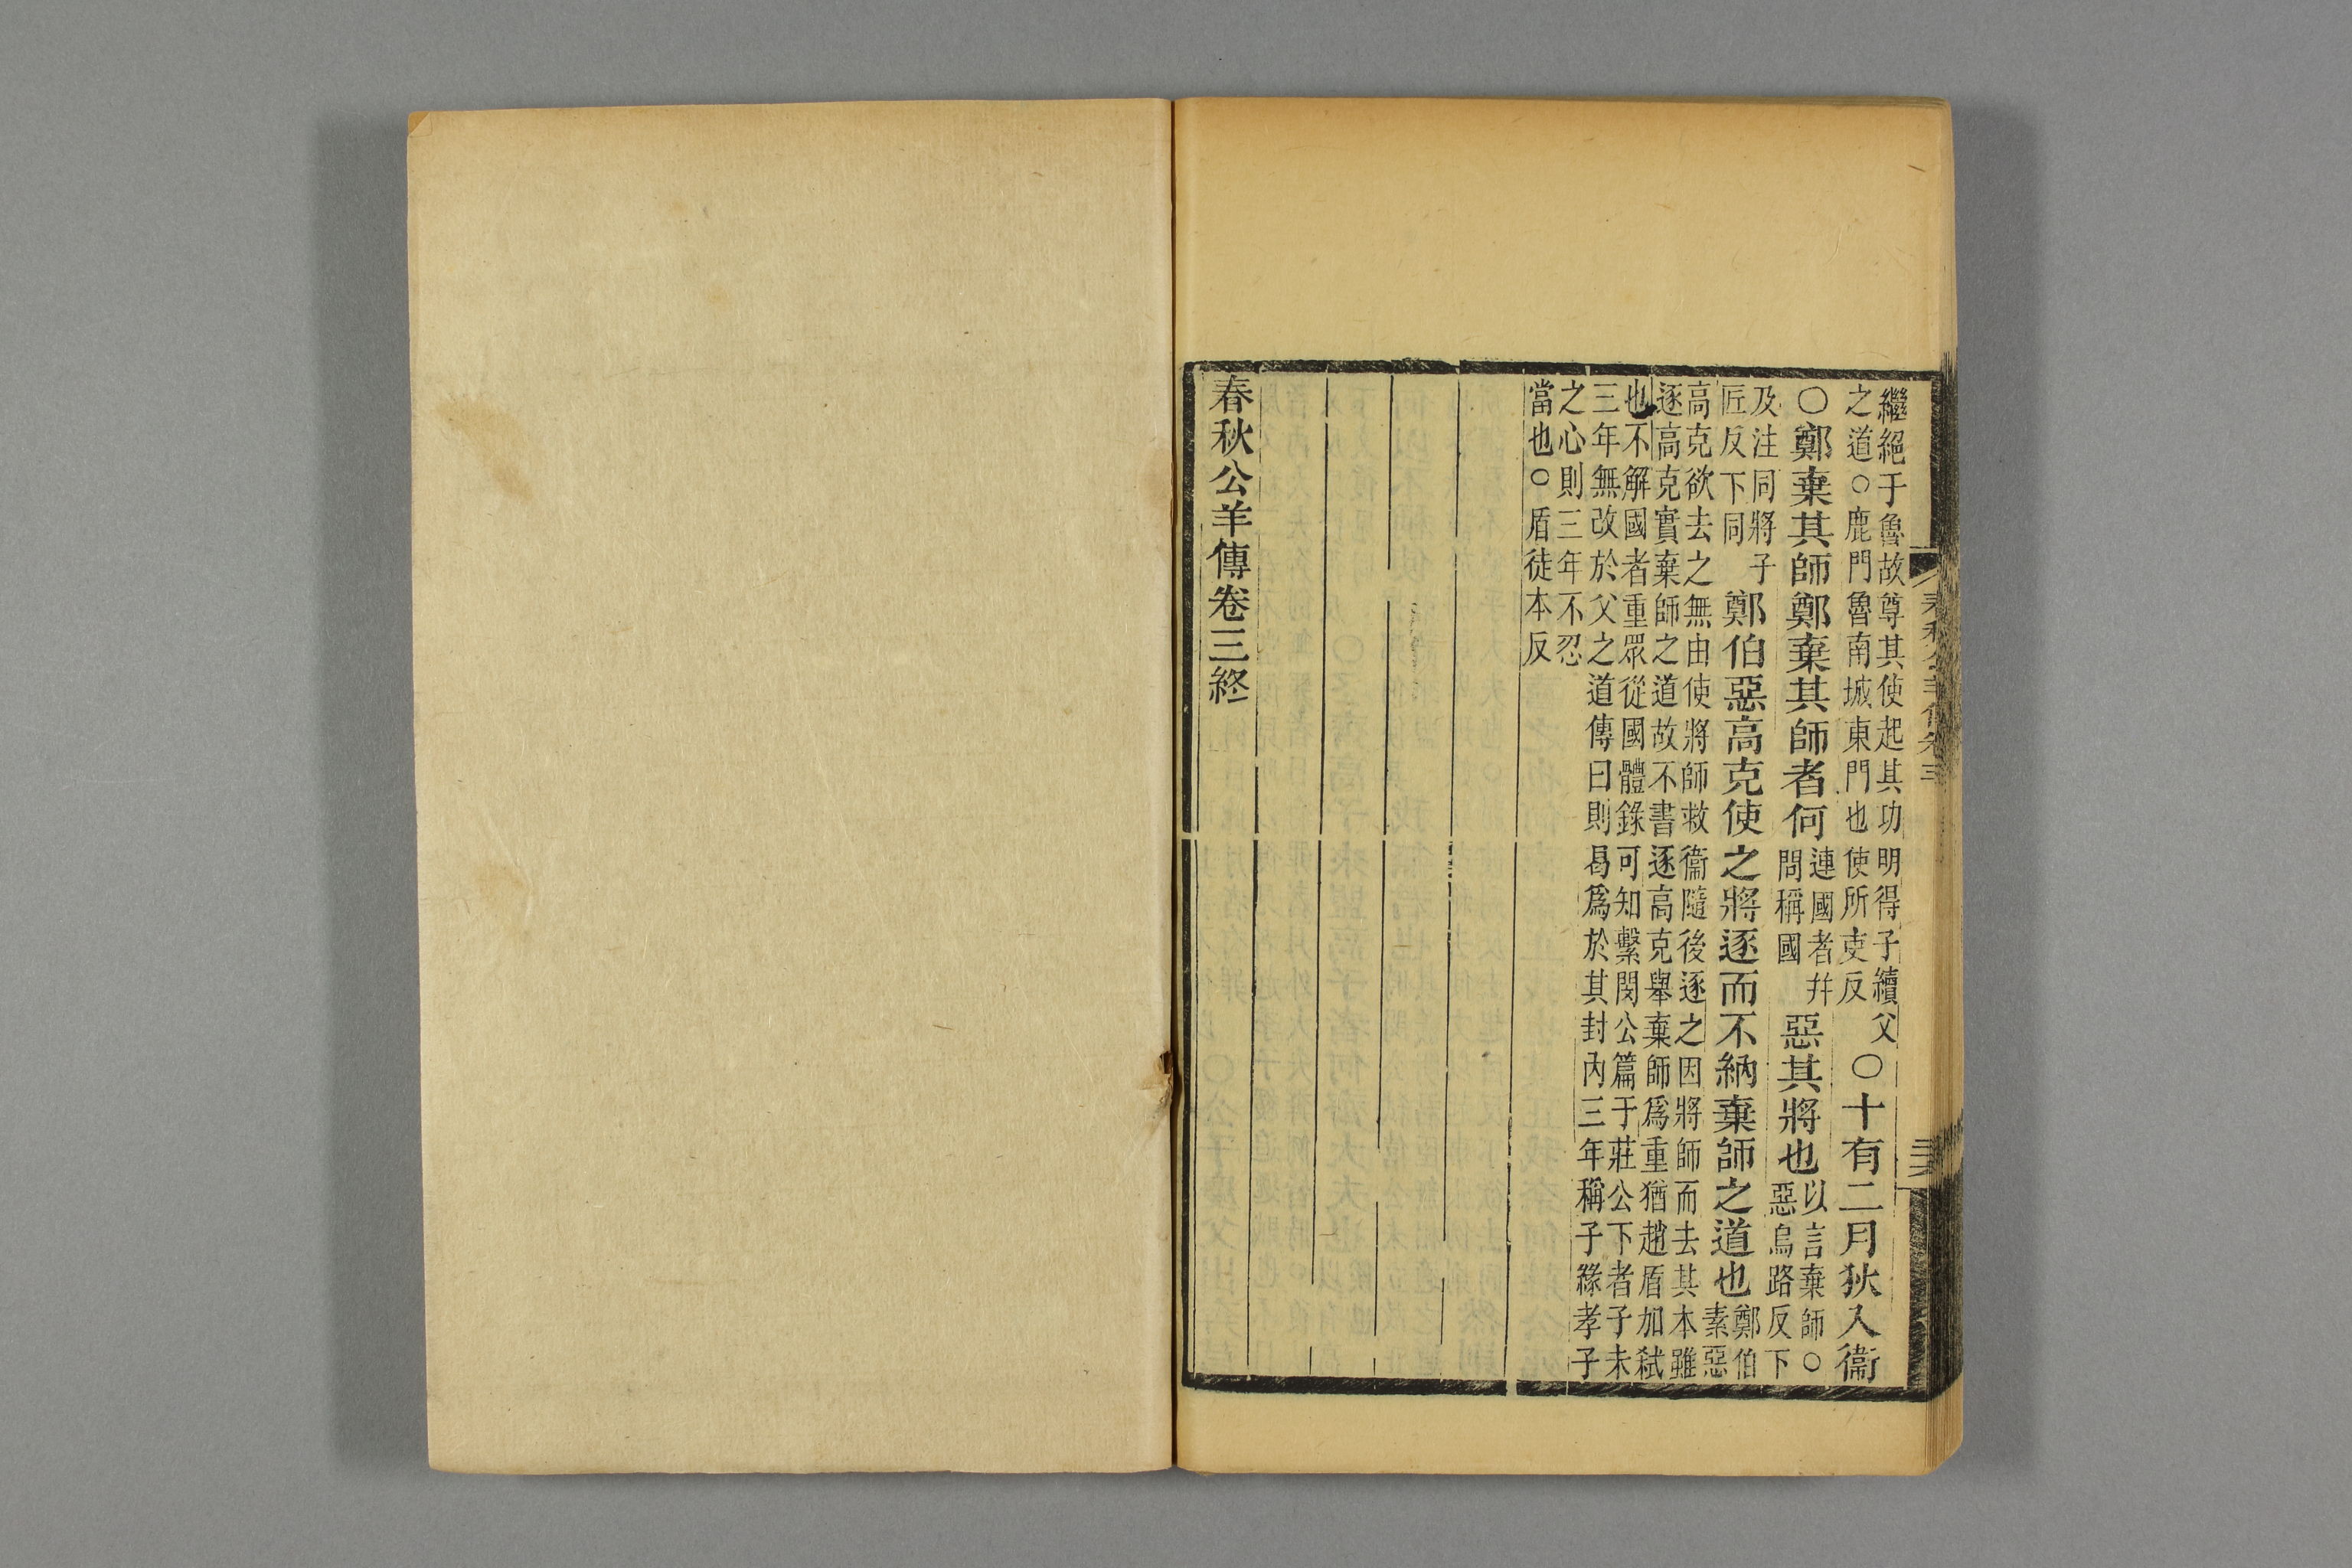 春秋公羊傳卷三
繼絕于魯故尊其使起其功明得子續父
之道○鹿門魯南城東門也使所吏反
○十有二月狄入衞
○鄭棄其師鄭棄其師者何
連國者幷
問稱國
惡其將也
以言棄師○
惡烏路反下
及注同將子
匠反下同
鄭伯惡高克使之將逐而不納棄師之道也
鄭伯
素惡
高克欲去之無由使將師救衞隨後逐之因將師而去其本雖
逐高克實棄師之道故不書逐高克舉棄師爲重猶趙盾加弒
也不解國者重眾從國體錄可知繫閔公篇于莊公下者子未
三年無改於父之道傳曰則曷爲於其封內三年稱子緣孝子
之心則三年不忍
當也○盾徒本反
春秋公羊傳卷三終